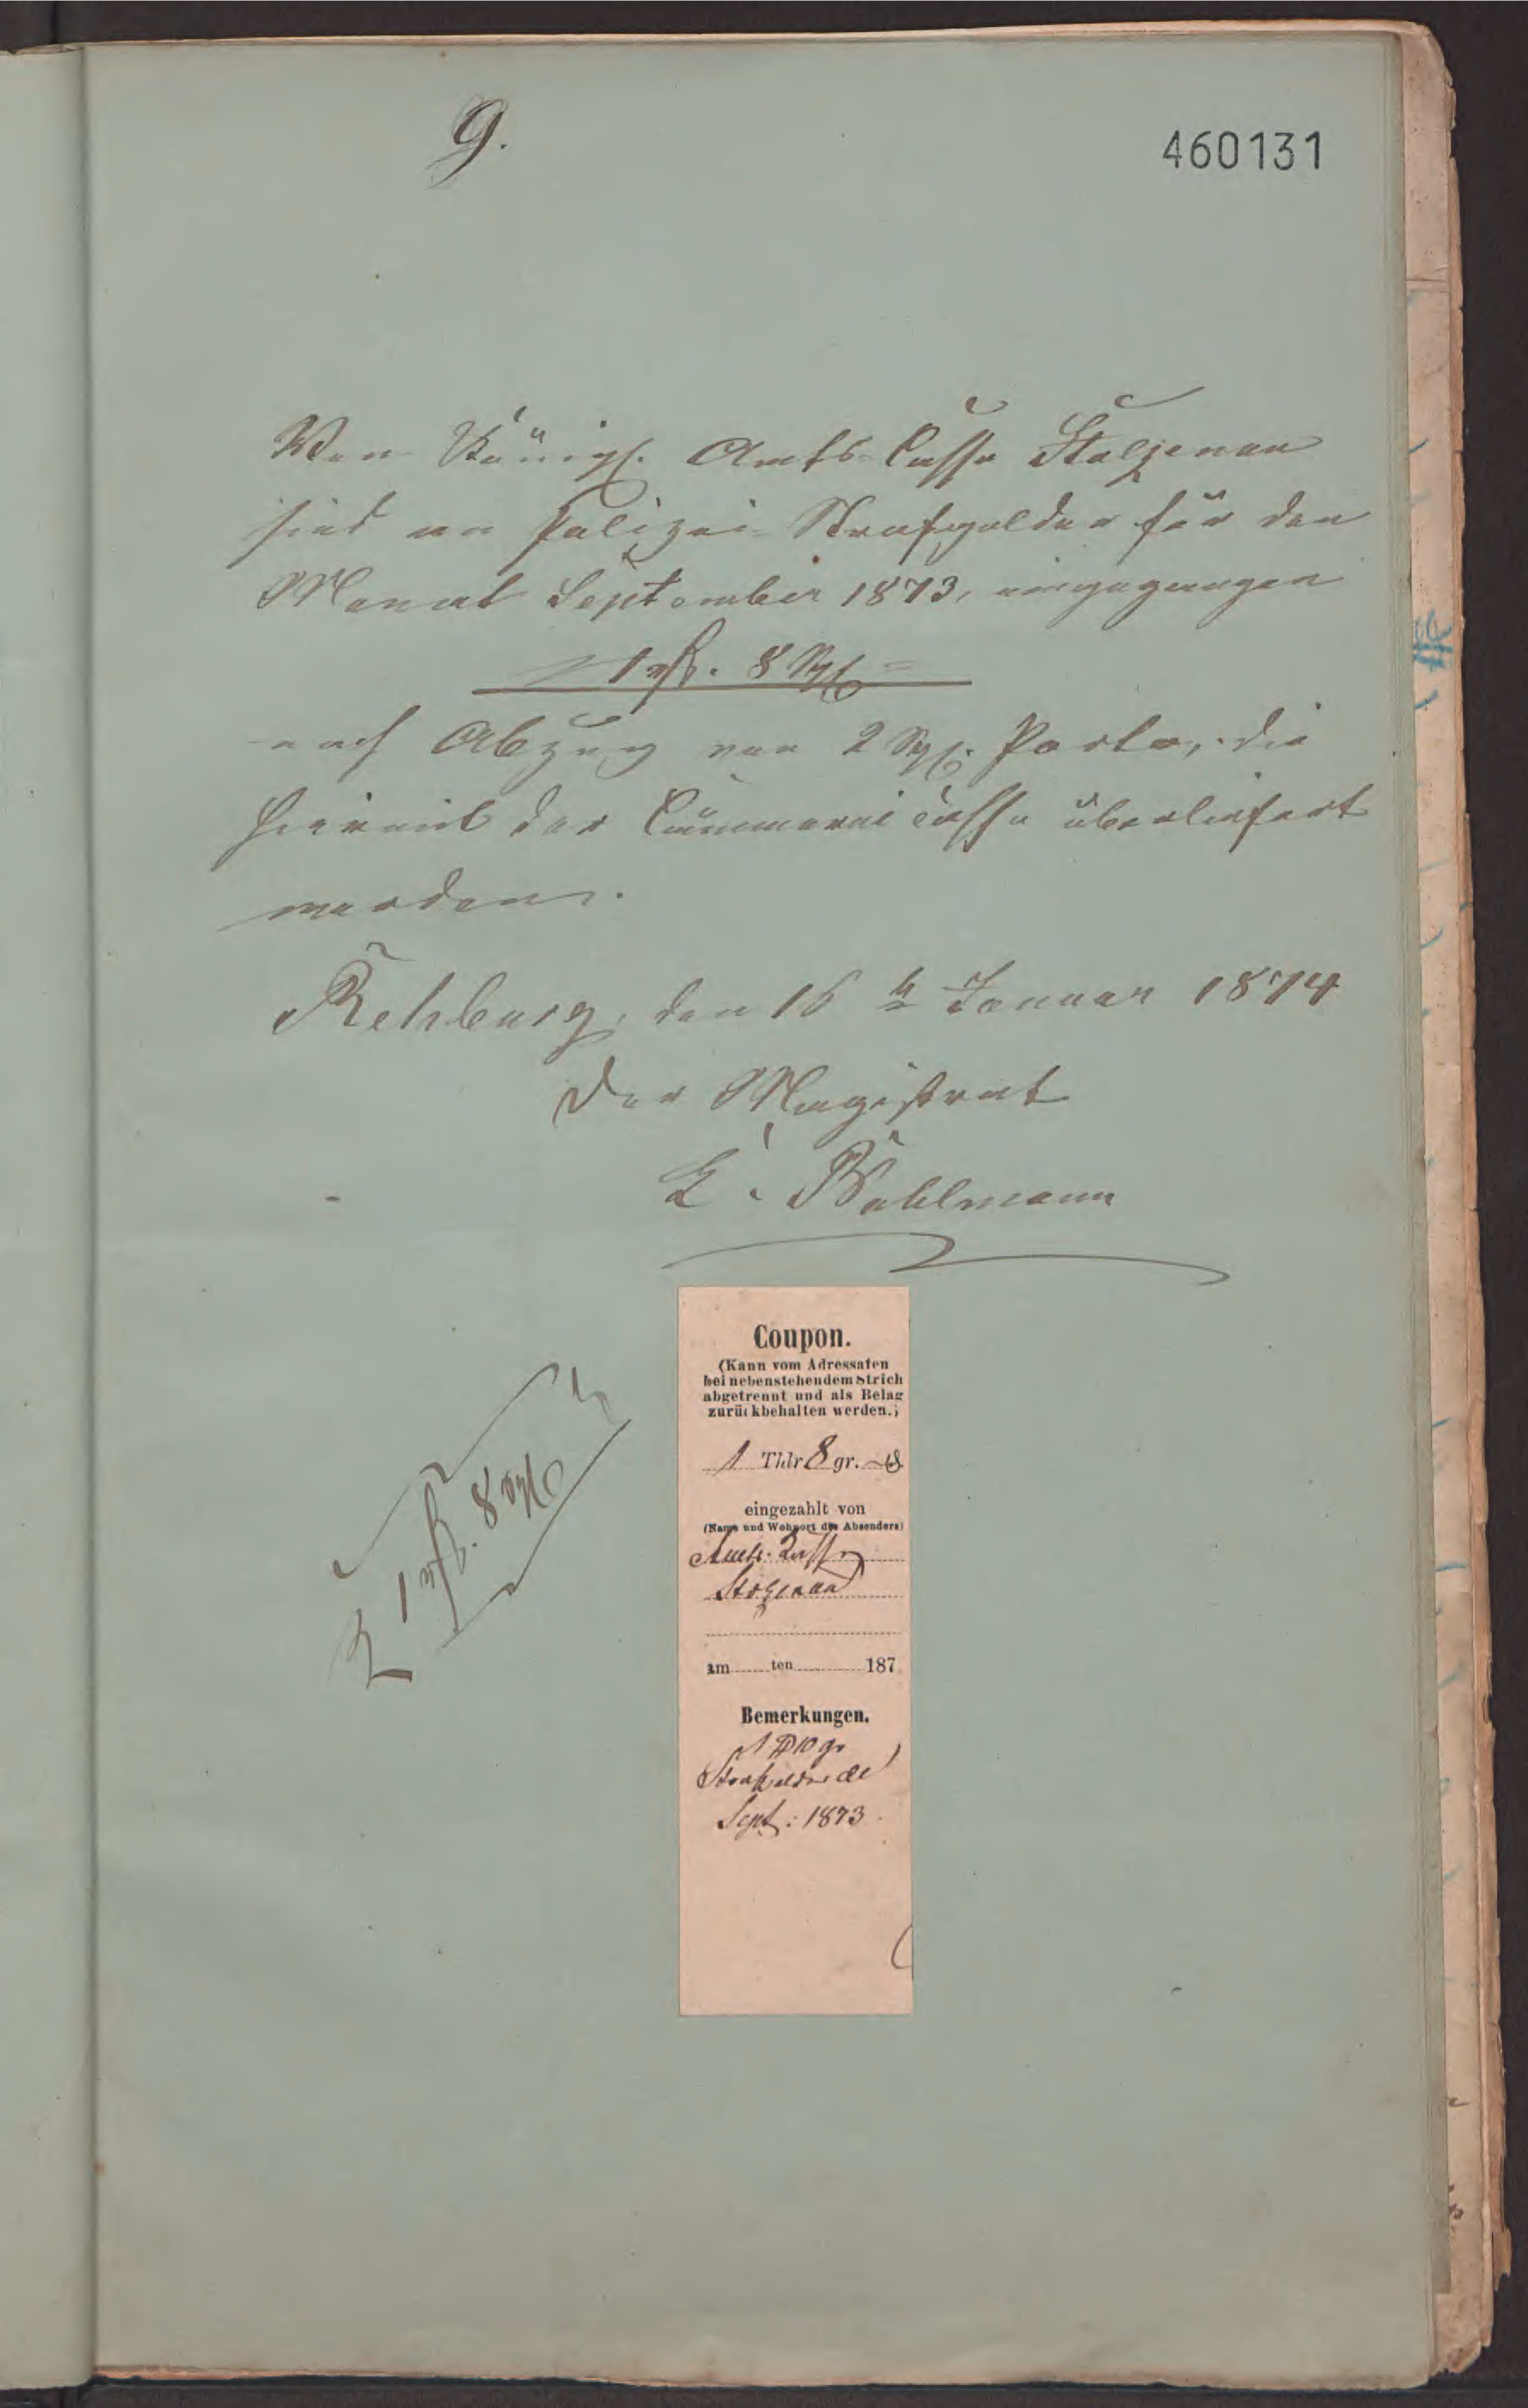 9.
460131
Von Königl. Amts-Casse Stolzenau
sind an Polizei-Strafgelder für den
Monat September 1873, eingegangen
1 rℓ. 8 Sgl
nach Abzug von 2 Sgl. Porto, die
hiermit der Cämmerei Casse überliefert
werden.
Rehburg, den 16 Januar 1874
Der Magistrat
E. Wahlmann
1 rℓ. 8 Sgl
Coupon.
(Kann vom Adressaten
bei nebenstehendem Strich
abgetrennt und als Belag
zurückbehalten werden.)
1 Thlr 8 gr.
eingezahlt von
(Name und Wohnort des Absenders)
Amts-Casse
Stolzenau
am ten 187
Bemerkungen.
1 10 gr
Strafgelder
Sept: 1873